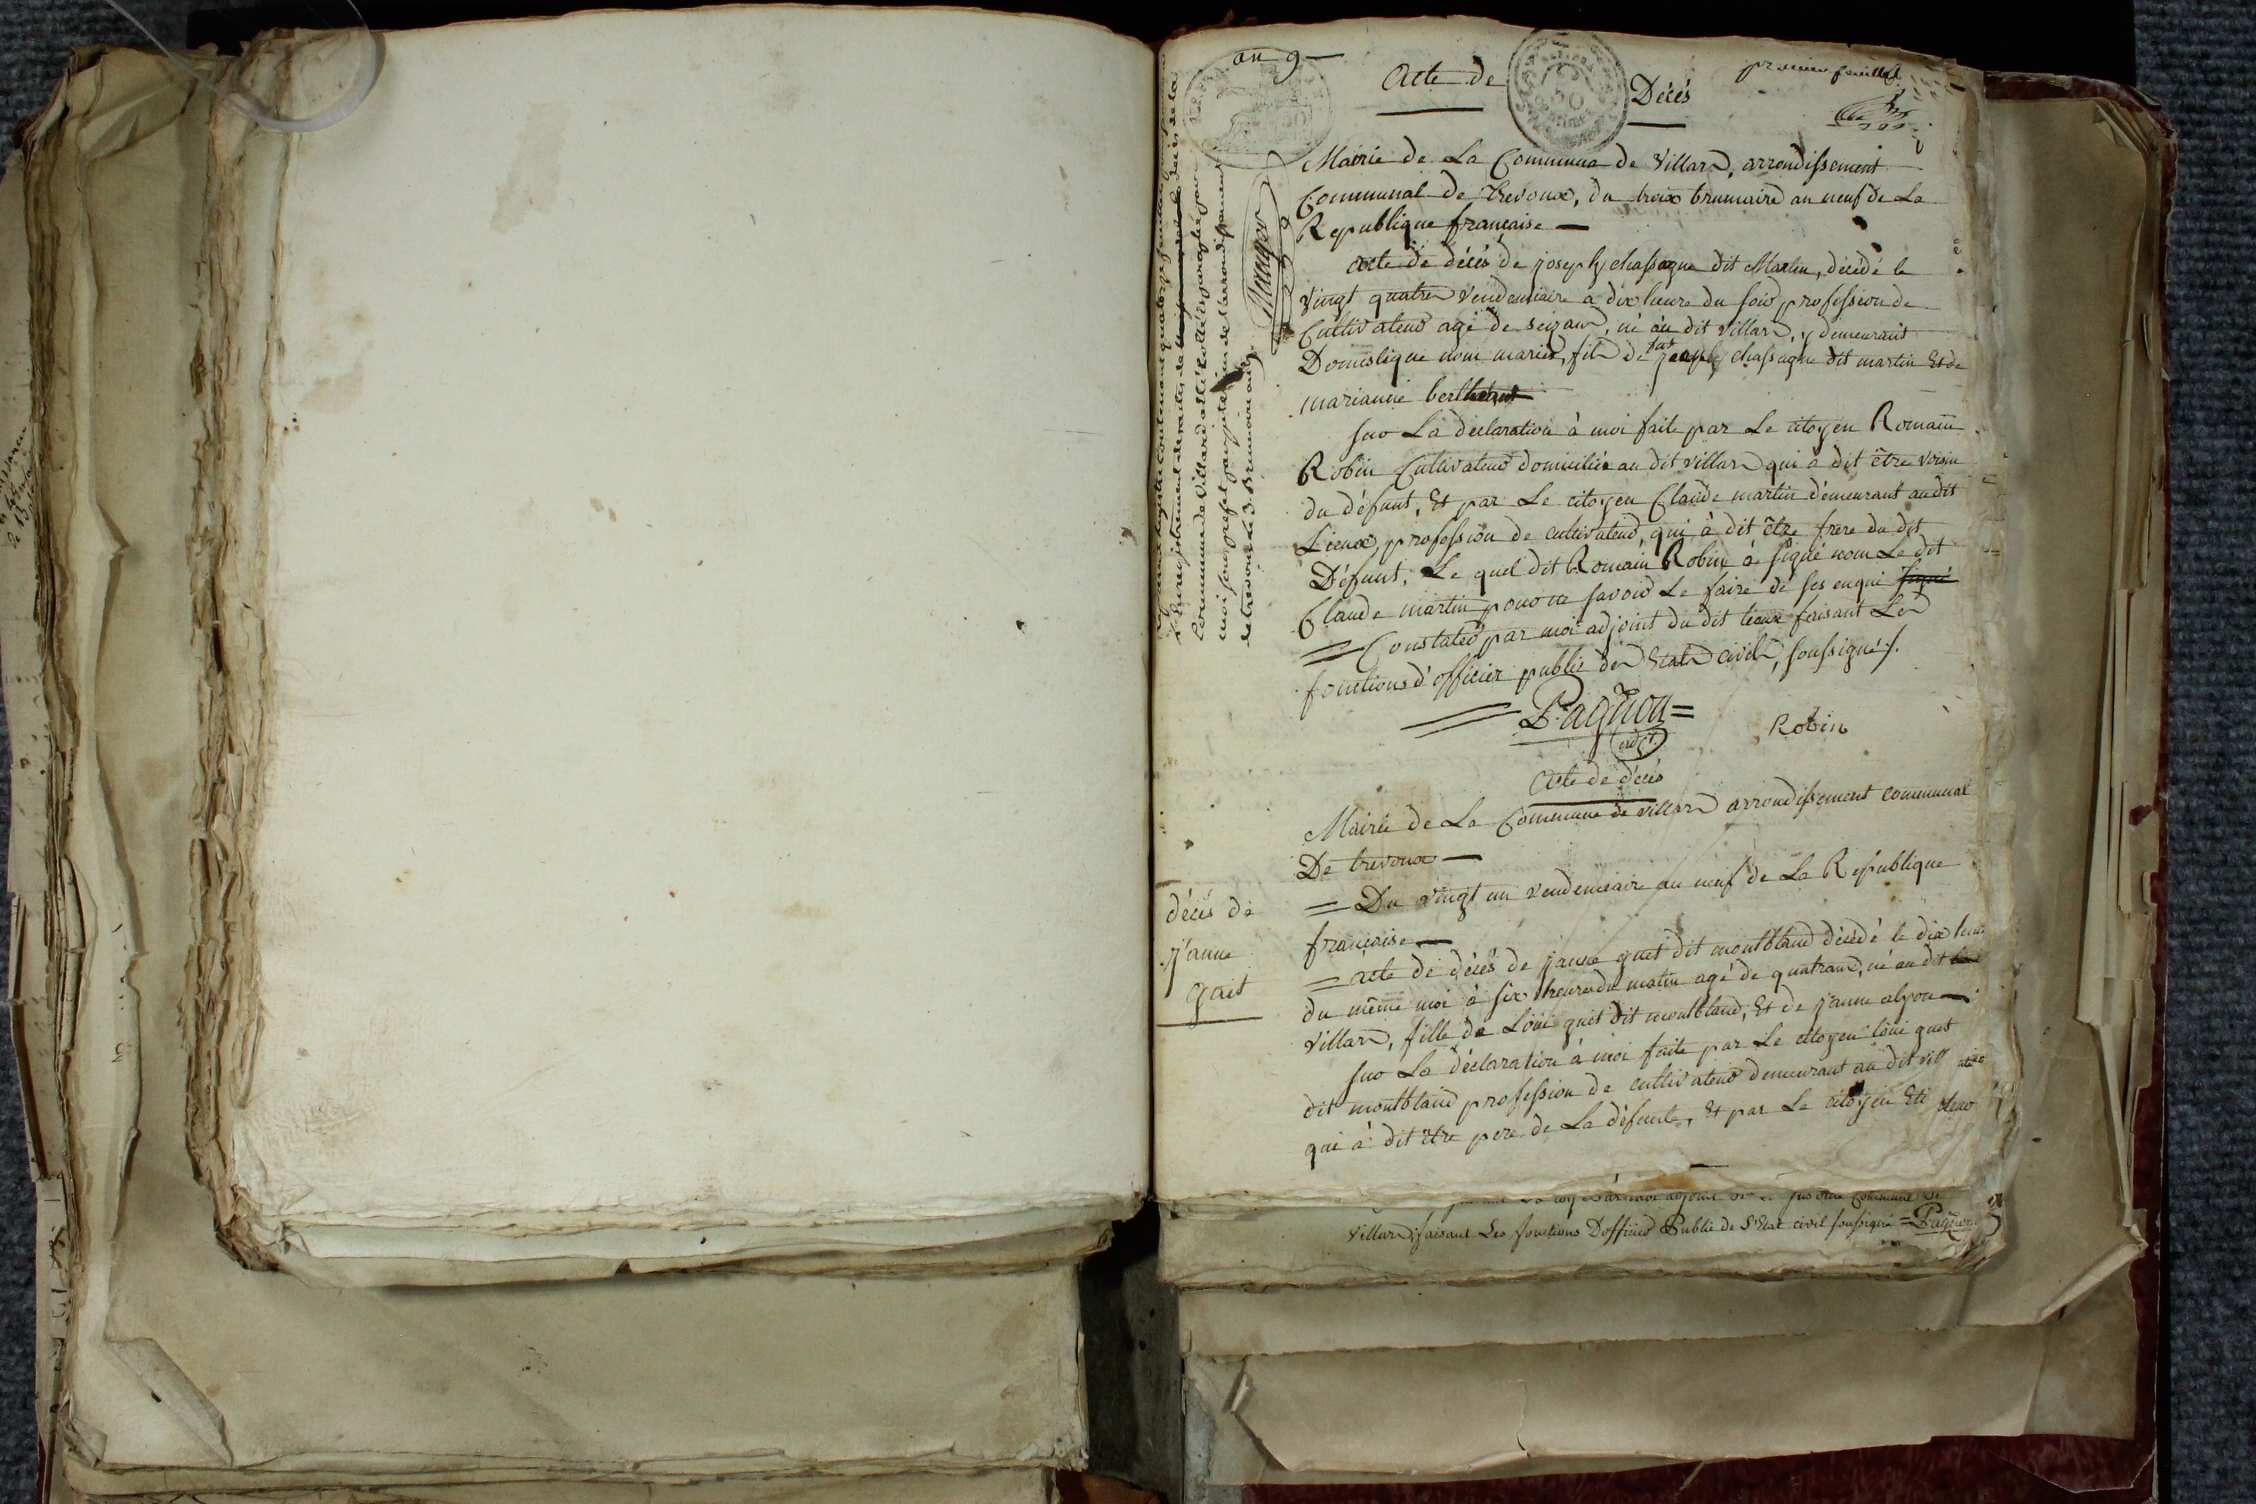 an 9
Acte de Décès
premier feuillet
Mairie de La Commune de Villars, arrondissement
Communal de trevoux, du troix brumaire an neuf de La
Republique française
acte de décès de joseph chassagne dit Martin, décédé le
vingt quatre vendemiaire a dix heure du soir profession de
Cultivateur agé de seizans, né au dit villars, y demeurant
Domestique non marié, fils de fut joseph chassagne dit martin Et de
marianne
sur La déclaration à moi faite par Le citoyen Romain
Robin Cultivateur domicilié au dit villars qui à dit être voisin
du défunt, Et par Le citoyen Claude martin demeurant au dit
Lieux, profession de cultivateur, qui à dit être frere du dit
Défunt, Le quel dit Romain Robin à signé non Le dit
Claude martin pour ne savoir Le faire de ses enqui signé
Constaté par moi adjoint du dit lieux faisant Les
fonctions d'officier public des Etats civils, soussigné
Pagnon
adjt
Robin
Acte de décès
Mairie de La Commune de villars arrondissement communal
De trevoux
décès de
j'anne
gait
Du vingt un vendemiaire an neuf de La Republique
française
acte de décès de janne guet dit montbland décédé le dix
du même moi à six heures du matin agé de quatrans, né au dit
Villars, fille de Loüi guet dit montbland, Et de janne alyon
sur La déclaration à moi faite par Le citoyen loüi guet
dit montbland profession de cultivateur demeurant au dit vill
qui à dit être pere de La défunte, Et par Le citoyen
par moi adjoint
Villars faisant Les fonctions D'officier Public de l'Etat civil soussigné Pagnon
contenant quatorze feuillets
L'Enregistrement des actes de
Commune de Villard a été cotté et paraphé par
moi sous préfet de l'arrondissement
de trevoux le 3 Brumaire an 9